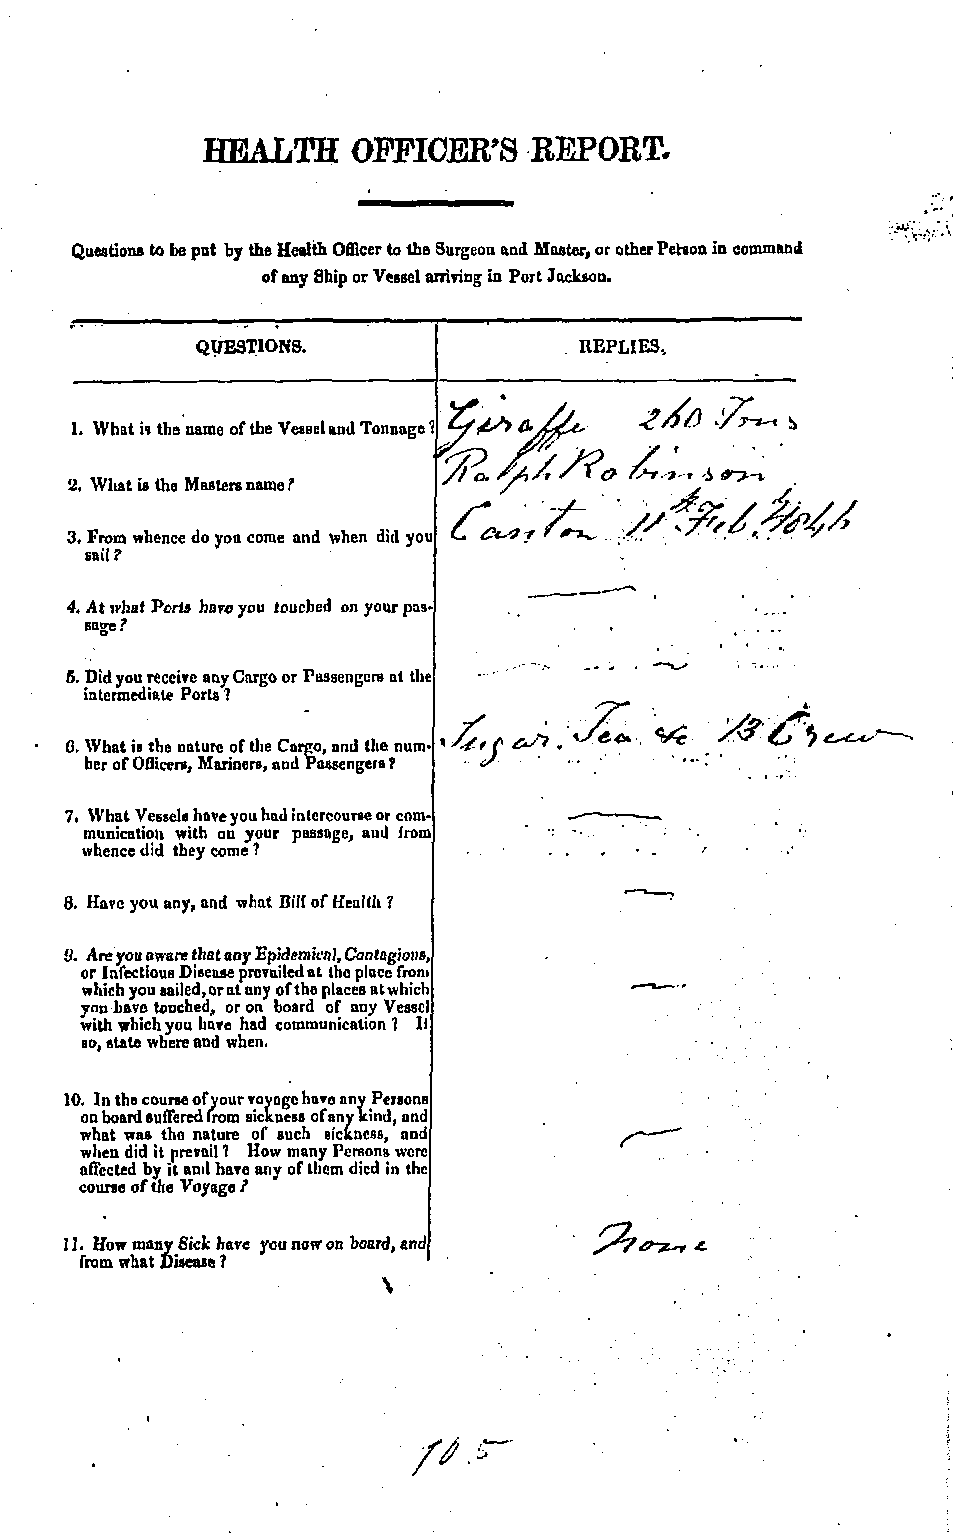 HEALTH OFFICER'S REPORT.
Questions to be put by the Health Officer to the Surgeon and Master, or other Person in command
of any Ship or Vessel arriving in Port Jackson.
QUESTIONS. REPLIES.
1. What is the name of the Vessel and Tonnage? Giraffe 260 Tons
2. What is the Masters name? Ralph Robinson
3. From whence do you come and when did you Canton 11th Feb. 1844
sail?
4. At what Ports have you touched on your pas-
sage?
5. Did you receive any Cargo or Passengers at the
intermediate Ports?
6. What is the nature of the Cargo, and the num- Sugar. Tea &c 13 Crew
ber of Officers, Mariners, and Passengers?
7. What Vessels have you had intercourse or com-
munication with on your passage, and from
whence did they come?
8. Have you any, and what Bill of Health?
9. Are you aware that any Epidemical, Contagious,
or Infectious Disease prevailed at the place from
which you sailed, or at any of the places at which
you have touched, or on board of any Vessel
with which you have had communication? If
so, state where and when.
10. In the course of your voyage have any Persons
on board suffered from sickness of any kind, and
what was the nature of such sickness, and
when did it prevail? How many Persons were
affected by it and have any of them died in the
course of the Voyage?
11. How many Sick have you now on board, and None
from what Disease?
105